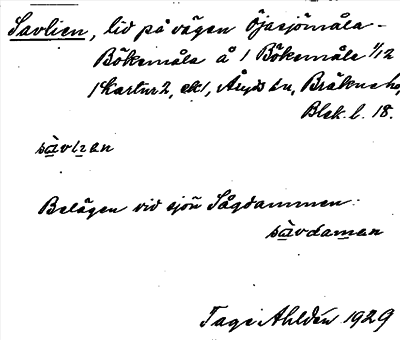 Savlien, lid på vägen Öjasjömåla -
Bökemåla å 1 Bökemåla 1/12
1 kartur 2, ek 1, Åryds sn, Bräkne ho,
Blek. l. 18.
sàvlıɛn
Belägen vid sjön Sågdammen:
sàvdamen
Tage Ahldén 1929